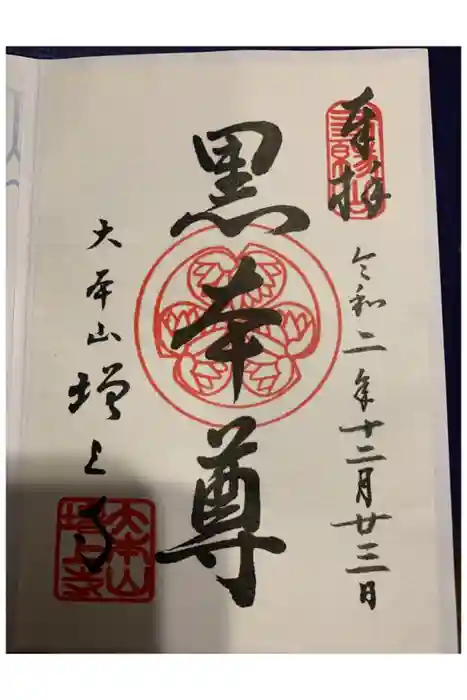 奉拝
令和二年十二月廿三日
黒本尊
大本山増上寺
三縁山
大本山
増上寺